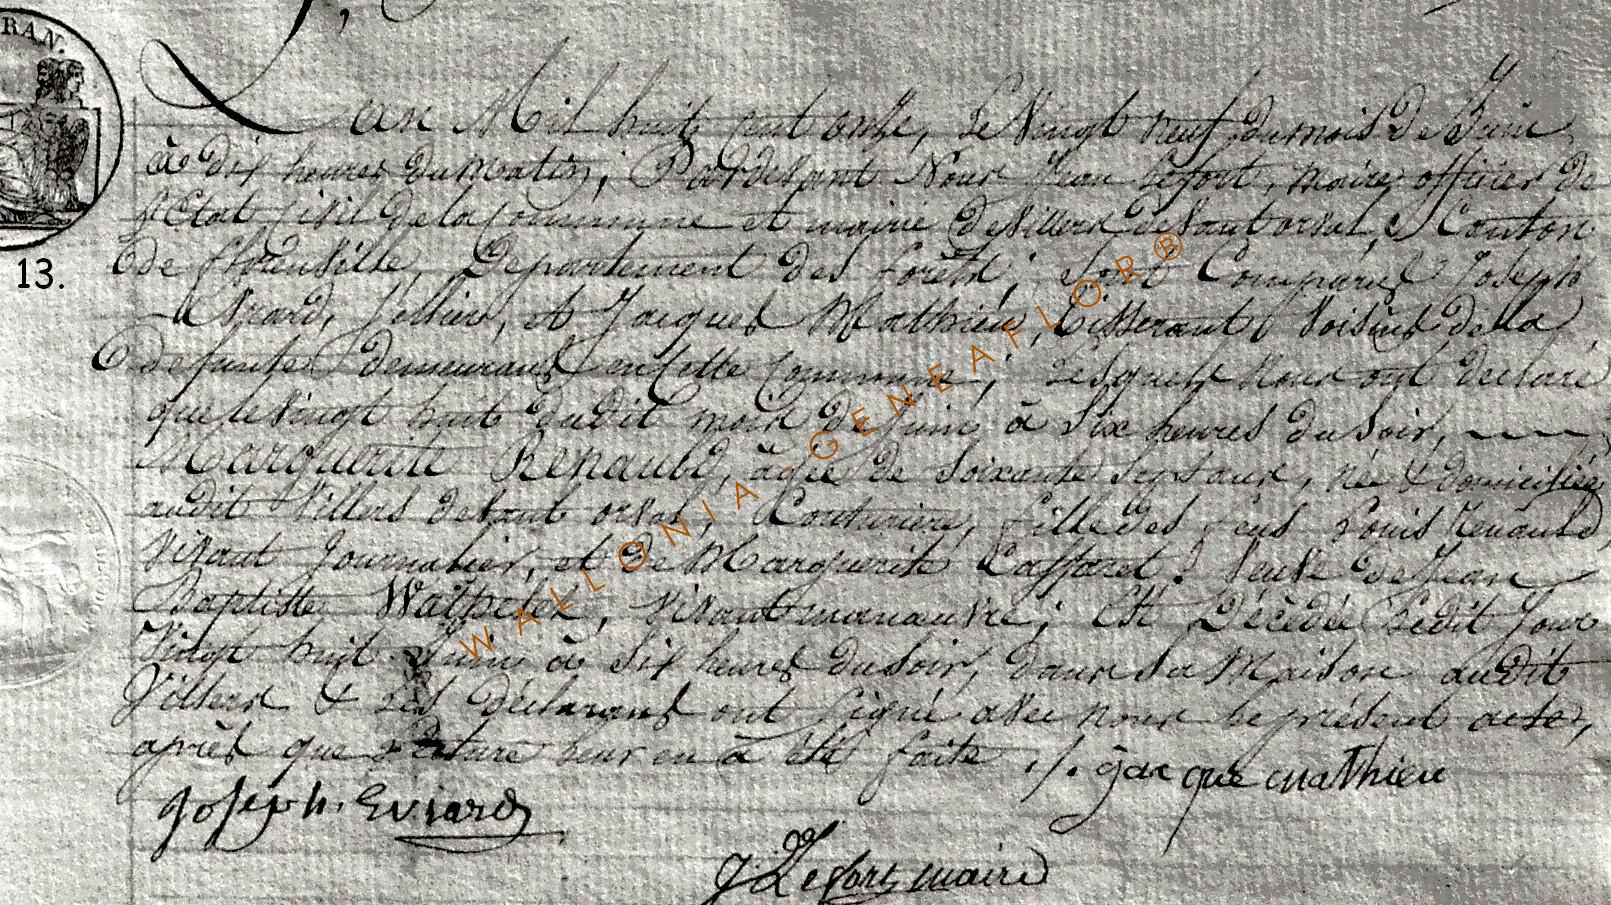 RAN.
L'an Mil huit cent onze, Le Vingt neuf du mois de Juin
à dix heures du matin, Pardevant Nous Jean Lefort, maire, officier de
l'Etat Civil de la Commune et mairie de Villers devant orval, Canton
de florenville, Departement des forêts; sont Comparus Joseph
Evrard, Sellier, et Jacques Mathieu, Tisserant, Voisins de la
defunte demeurans en cette Commune; Lesquels nous ont declaré
que le vingt huit dudit mois de Juin à Six heures du Soir,
Marguerite Renauld, âgée de Soixante Sept ans, née & domiciliée
audit Villers devant orval, Couturière, fille des feus Louis Renauld,
vivant Journalier, et de Marguerite Caffaret. Veuve de Jean
Baptiste Wathelet, vivant manœuvre; est Décédée Ledit Jour
vingt huit Juin à Six heures du Soir, dans sa Maison audit
Villers & Les déclarans ont signé avec nous le présent acte,
après que Lecture leur en à été faite ./. gacque mathieu
Joseph. Evrard
J Lefort maire
13.
WALLONIA-GENEAFLOR®